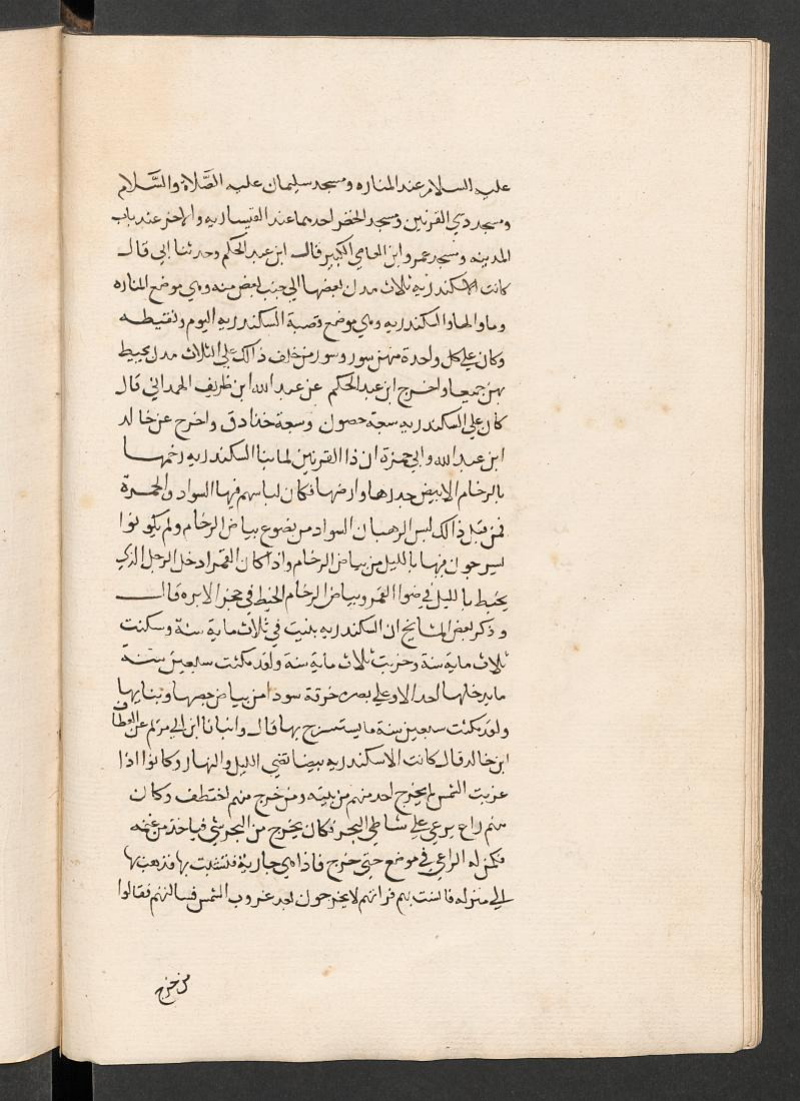 عليه السلام عند المناره ومسجد سليمان عليه الصَّلاة والسَّلام
ومسجد دي القرنين ومسجد الخضر احدهما عند القيساريه والاخر عند باب
المدينه ومسجد عمرو ابن العاصي الكبير قال ابن عبد الحكم وحدثنا ابي قال
كانت الاسكندريه ثلاث مدن بعضها الي جنب بعض منه وهي موضع المناره
وما والاها والسكندريه وهي موضع قصبة السكندريه اليوم ونقيطه
وكان علي كل واحدة منهن سور وسور من خلف ذالك علي الثلاث مدن يحيط
بهن جميعا واخرج ابن عبد الحكم عن عبد الله ابن ظريف الهمداني قال
كان علي السكندريه سبعة حصون وسبعة خنادق واخرج عن خالد
ابن عبد الله وابي حمزة ان ذا القرنين لما بنا السكندريه رخمها
بالرخام الابيض جدرها وارضها فكان لباسهم فيها السواد والحمرة
فمن قبل ذالك لبس الرهبان السواد من نصوع بياض الرخام ولم يكونوا
يسرجون فيها بالليل من بياض الرخام واذا كان القمر ادخل الرجل الذي
يخيط بالليل في ضوا القمر وبياض الرخام الخيط في حجر الابره قال
وذكر بعض المشايخ ان السكندريه بنيت في ثلاث ماية سنة وسكنت
ثلاث ماية سنة وخربت ثلاث ماية سنة ولقد مكثت سبعين سنة
ما يدخلها احد الا وعلي بصره خرقة سودا من بياض جصها وبنايها
ولقد مكثت سبعين سنة ما يستسرج بها قال وانبانا ابن ابي مريم عن العطاف
ابن خالد قال كانت الاسكندريه بيضا تضي الليل والنهار وكانوا اذا
غربت الشمس لم يخرج احد منهم من بيته ومن خرج منهم اختطف وكان
منهم راع يرعي علي شاطي البحر فكان يخرج من البحر شي فياخذ من غنمه
فكمن له الراعي في موضع حتي خرج فاذا هي جارية فتشبث بها فذهب بها
الي منزله فانست بهم فراتهم لا يخرجون بعد غروب الشمس فسالتهم فقالوا
من خرج